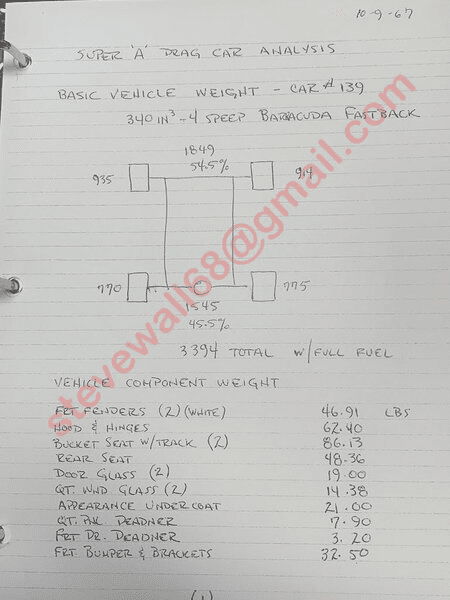 10-9-67
SUPER 'A' DRAG CAR ANALYSIS
BASIC VEHICLE WEIGHT - CAR # 139
340 IN³ - 4 SPEEP BARRACUDA FASTBACK
1849
54.5%
935
914
770
775
1545
45.5%
3394 TOTAL W/FULL FUEL
VEHICLE COMPONENT WEIGHT
FRT FENDERS (2) (WHITE) 46.91 LBS
HOOD & HINGES 62.40
BUCKET SEAT W/TRACK (2) 86.13
REAR SEAT 48.36
DOOR GLASS (2) 19.00
QT. WND GLASS (2) 14.38
APPEARANCE UNDERCOAT 21.00
QT. PNL DEADNER 7.90
FRT DR. DEADNER 3.20
FRT BUMPER & BRACKETS 32.50
(1)
stevewall68@gmail.com